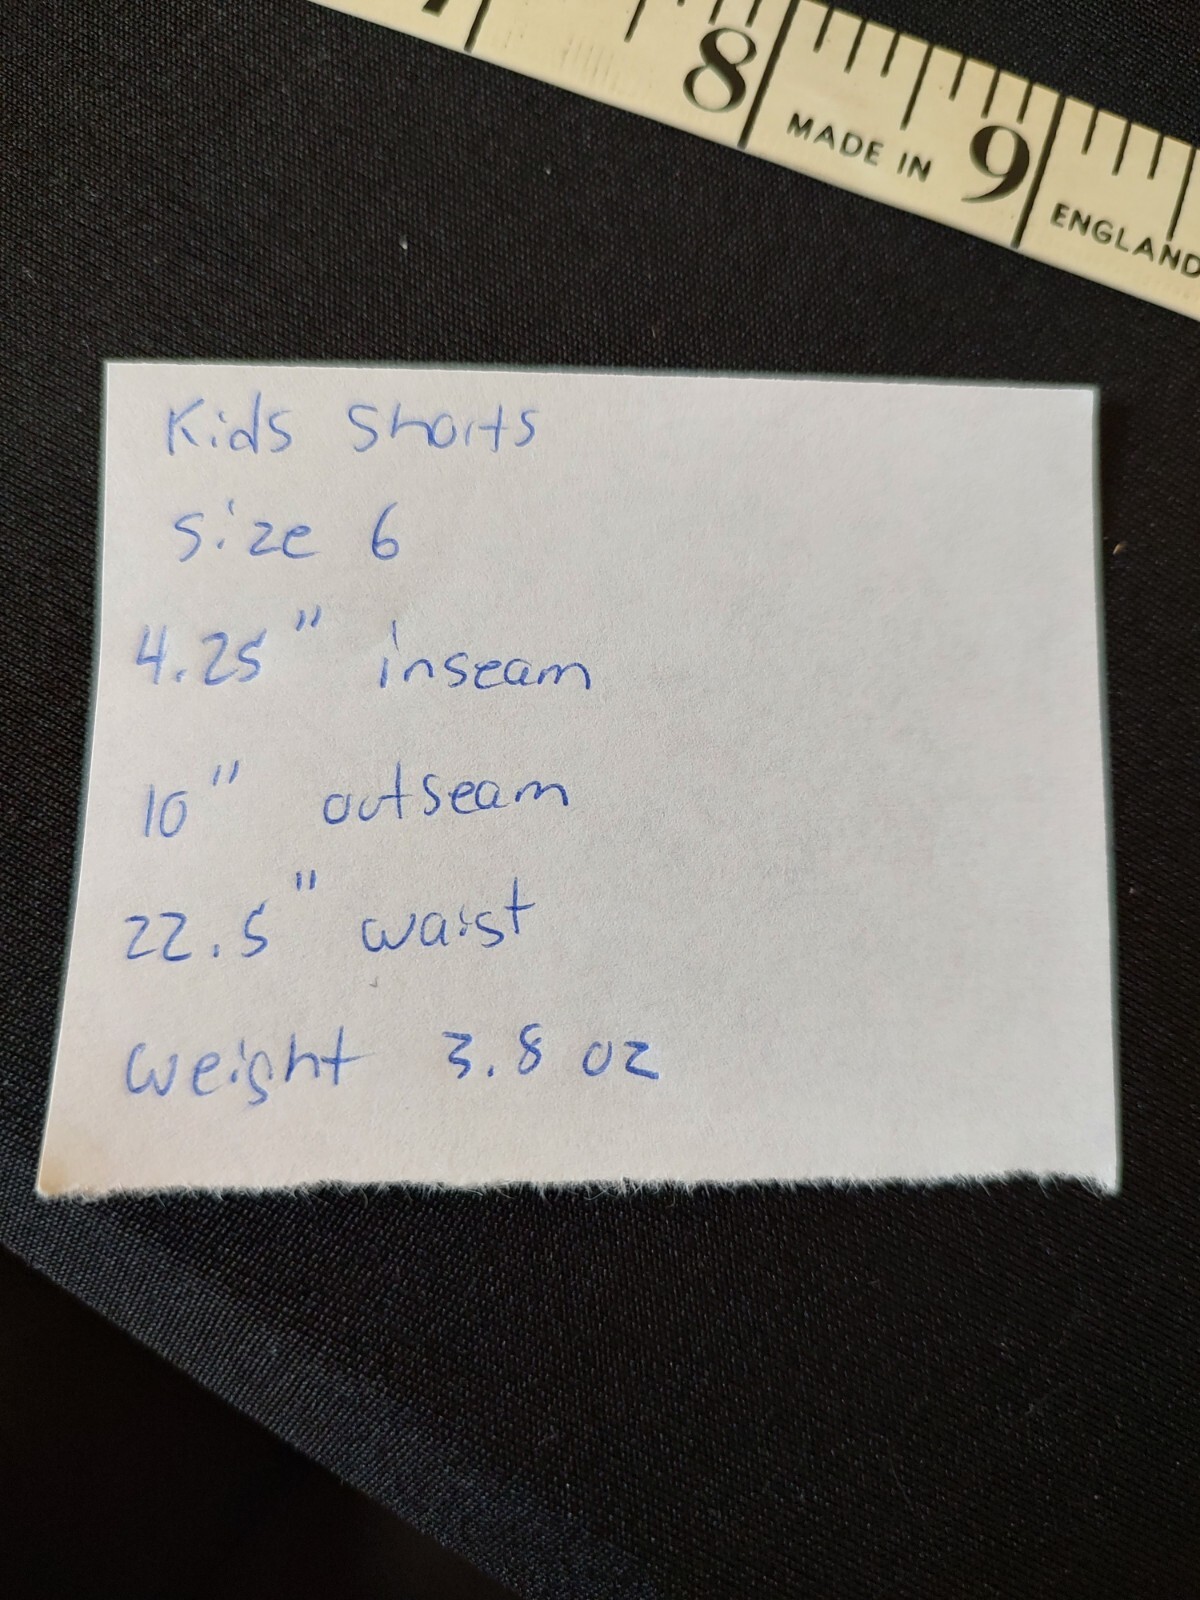 7
8
MADE IN
9
ENGLAND
Kids Shorts
size 6
4.25" inseam
10" outseam
22.5" waist
weight 3.8 oz